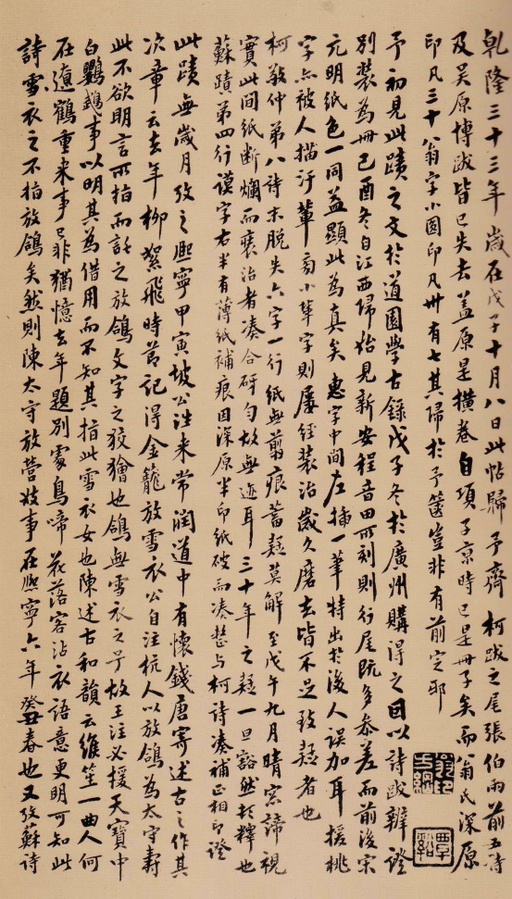 乾隆三十三年歲在戊子十月八日此帖歸予齋柯跋之尾張伯雨前五詩
及吳原博跋皆已失去蓋原是橫卷自項子京時已是冊子矣而翁氏深原
印凡三十八翁字小圓印凡卅有七其歸於予篋豈非有前定耶
予初見此蹟之文於道園學古錄戊子冬於廣州購得之因以詩跋辨證
別裝為冊己酉冬自江西歸始見新安程音田所刻則行尾既多參差而前後宋
元明紙色一同益顯此為真矣惠字中間左插一筆特出於後人誤加耳援桃
字点被人描汙葦卥小葦字則屢經裝治歲久磨去皆不足致疑者也
柯敬仲第八詩末脫失六字一行紙無翦痕蓄疑莫解至戊午九月晴窓諦視
實此間紙斷爛而裹治者湊合研勻故無迹耳三十年之疑一旦豁然冰釋也
蘇蹟第四行謨字右半有薄紙補痕因深原半印紙破而湊整与柯詩湊補正相印證
此蹟無歲月攷之熙寧甲寅坡公往来常潤道中有懷錢唐寄述古之作其
次章云去年柳絮飛時節記得金籠放雪衣公自注杭人以放鴿為太守壽
此不欲明言所指而託之放鴿文字之狡獪也鴿無雪衣之号故王注必援天寶中
白鸚鵡事以明其為借用而不知其指此雪衣女也陳述古和韻云維笙一曲人何
在遼鶴重来事已非猶憶去年題別處鳥啼花落客沾衣語意更明可知此
詩雪衣之不指放鴿矣然則陳太守放營妓事在熙寧六年癸丑春也又攷蘇詩